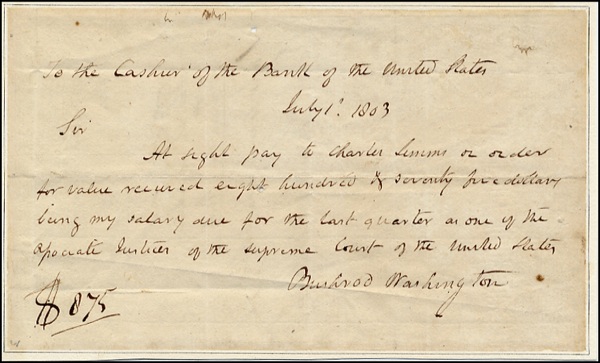 To the Cashier of the Bank of the United States
July 1st. 1803
Sir
At sight pay to Charles Simms or order
for value received eight hundred & seventy five dollars
being my salary due for the last quarter as one of the
Associate Justices of the supreme Court of the United States
Bushrod Washington
$ 875